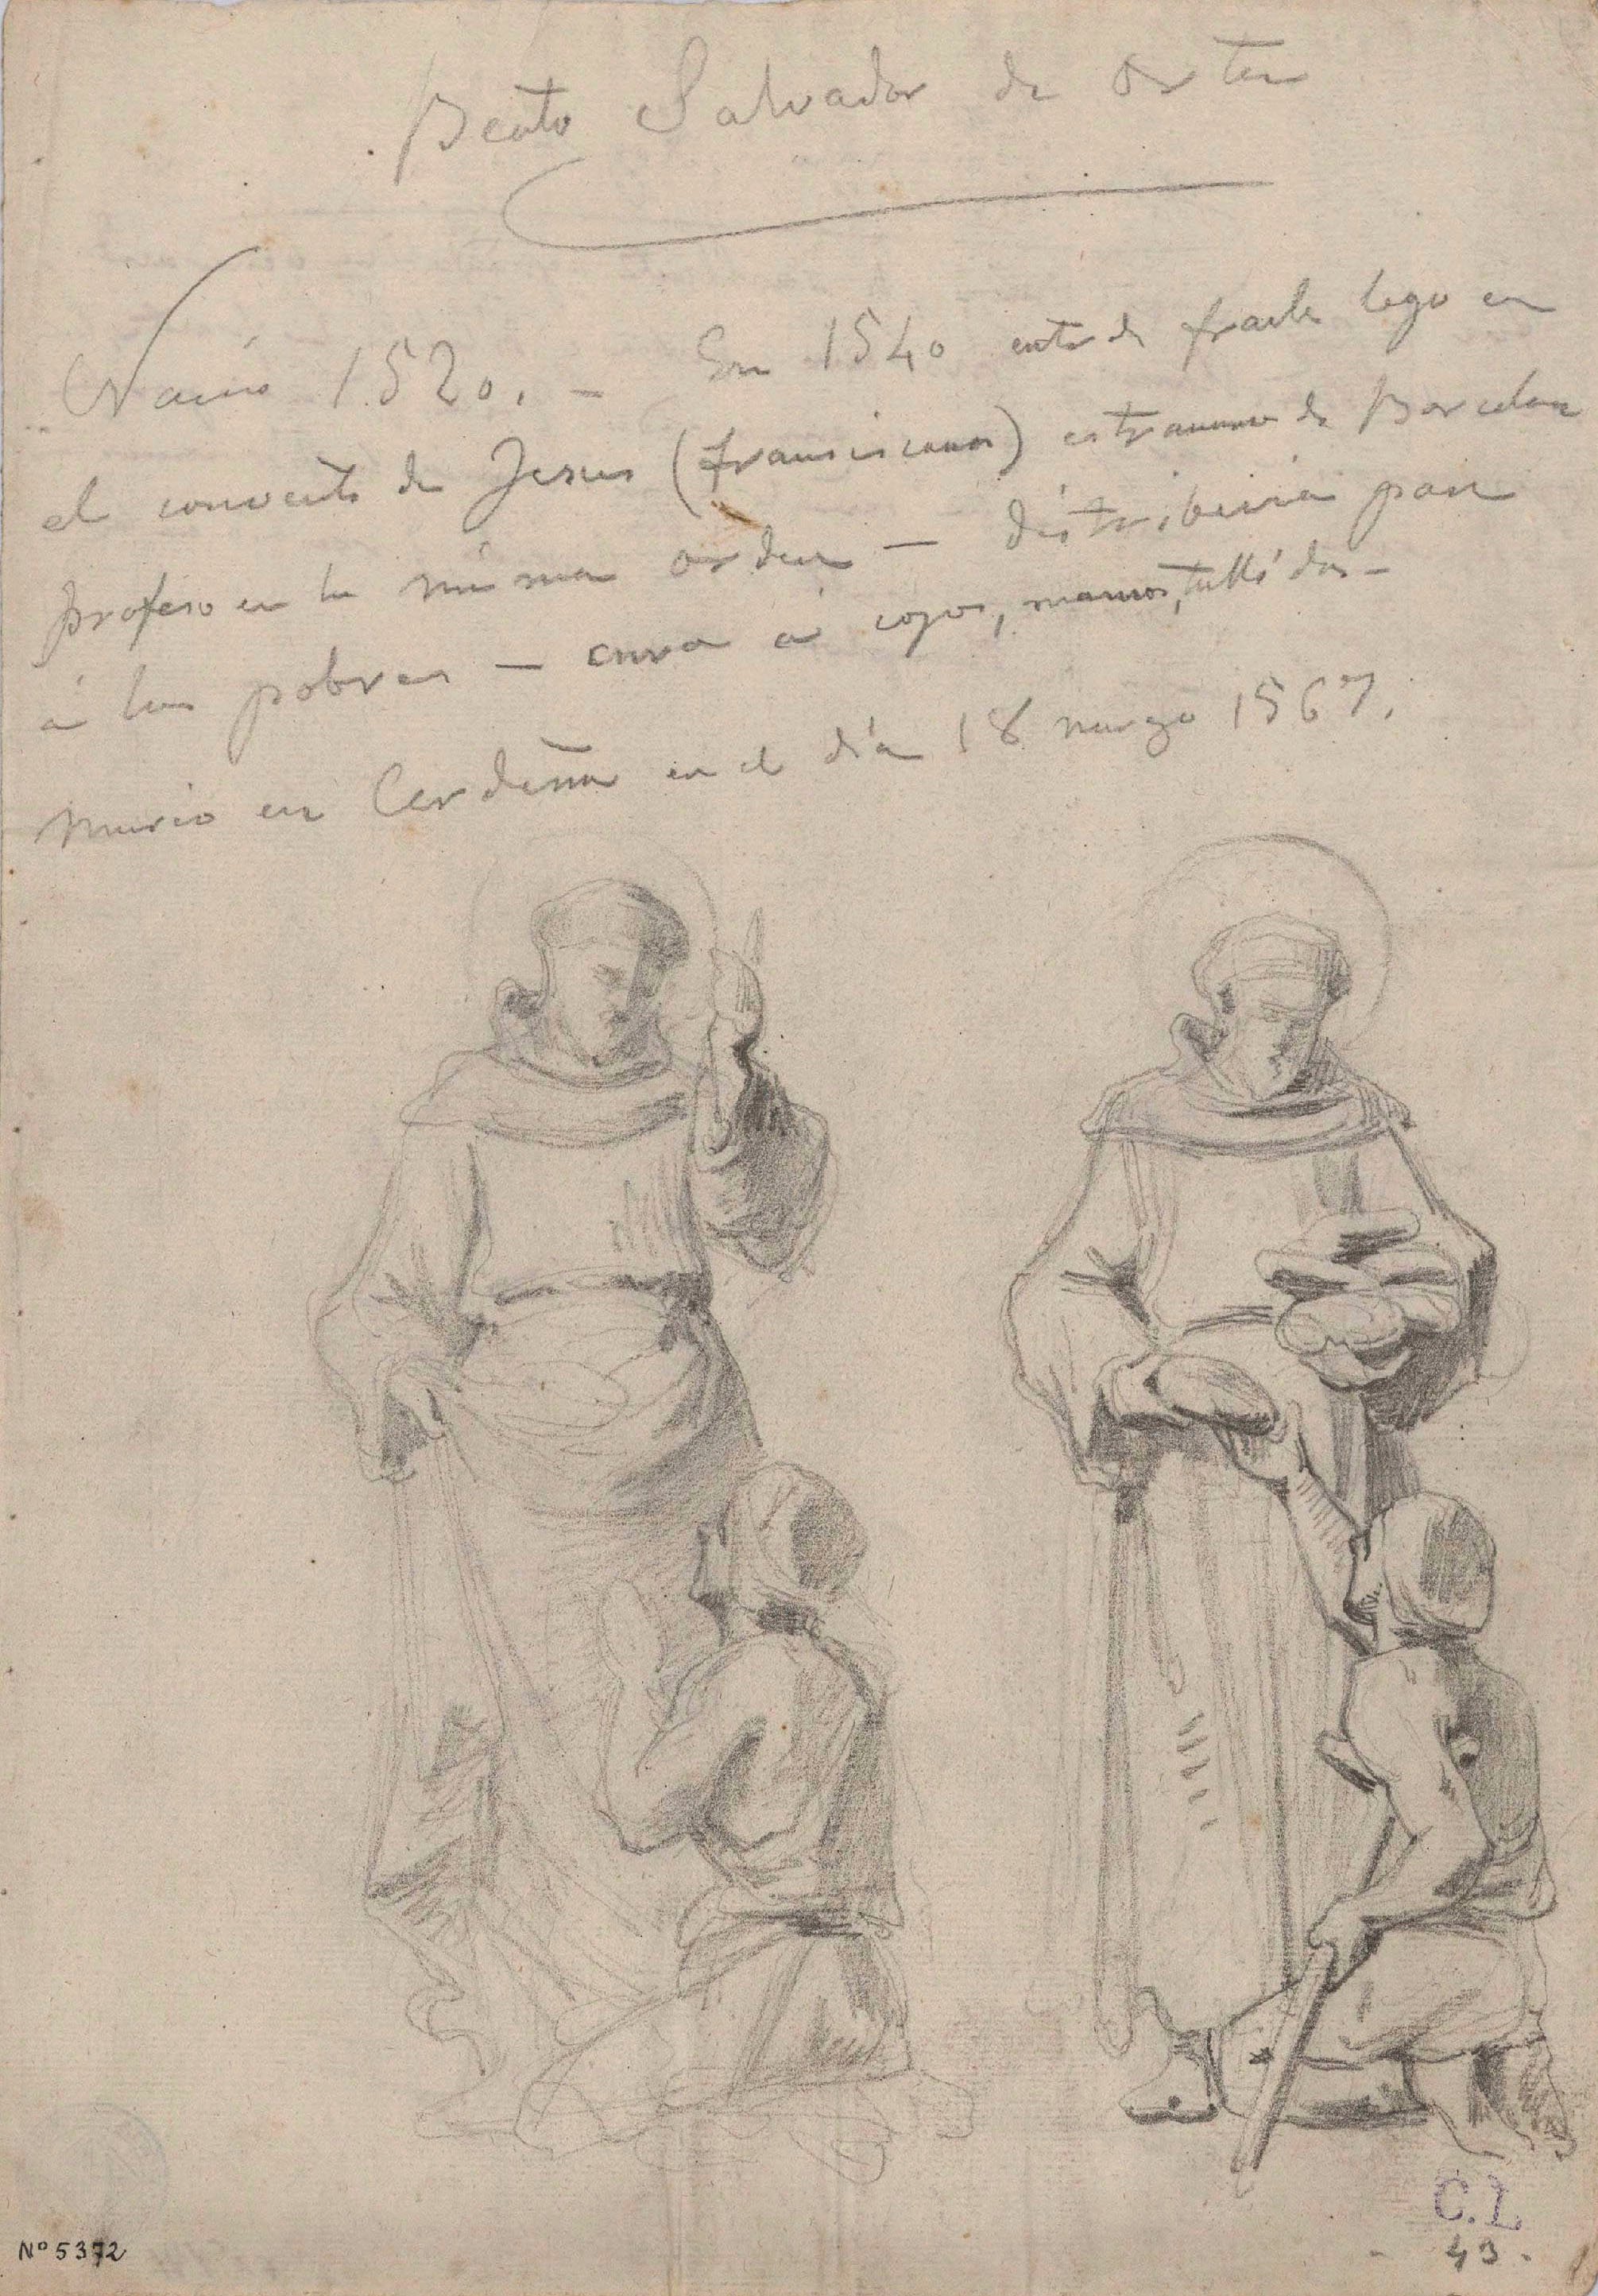 Beato Salvador de Orta
Nació 1520. - En 1540 entró de fraile lego en
el convento de Jesus (franciscanos) estramuros de Barcelona
profeso en la misma orden — distribuia pan
á los pobres — cura á cojos, mancos, tullidos -
murio en Cerdeña en el día 18 marzo 1567.
C.L
- 43 -
Nº 5372